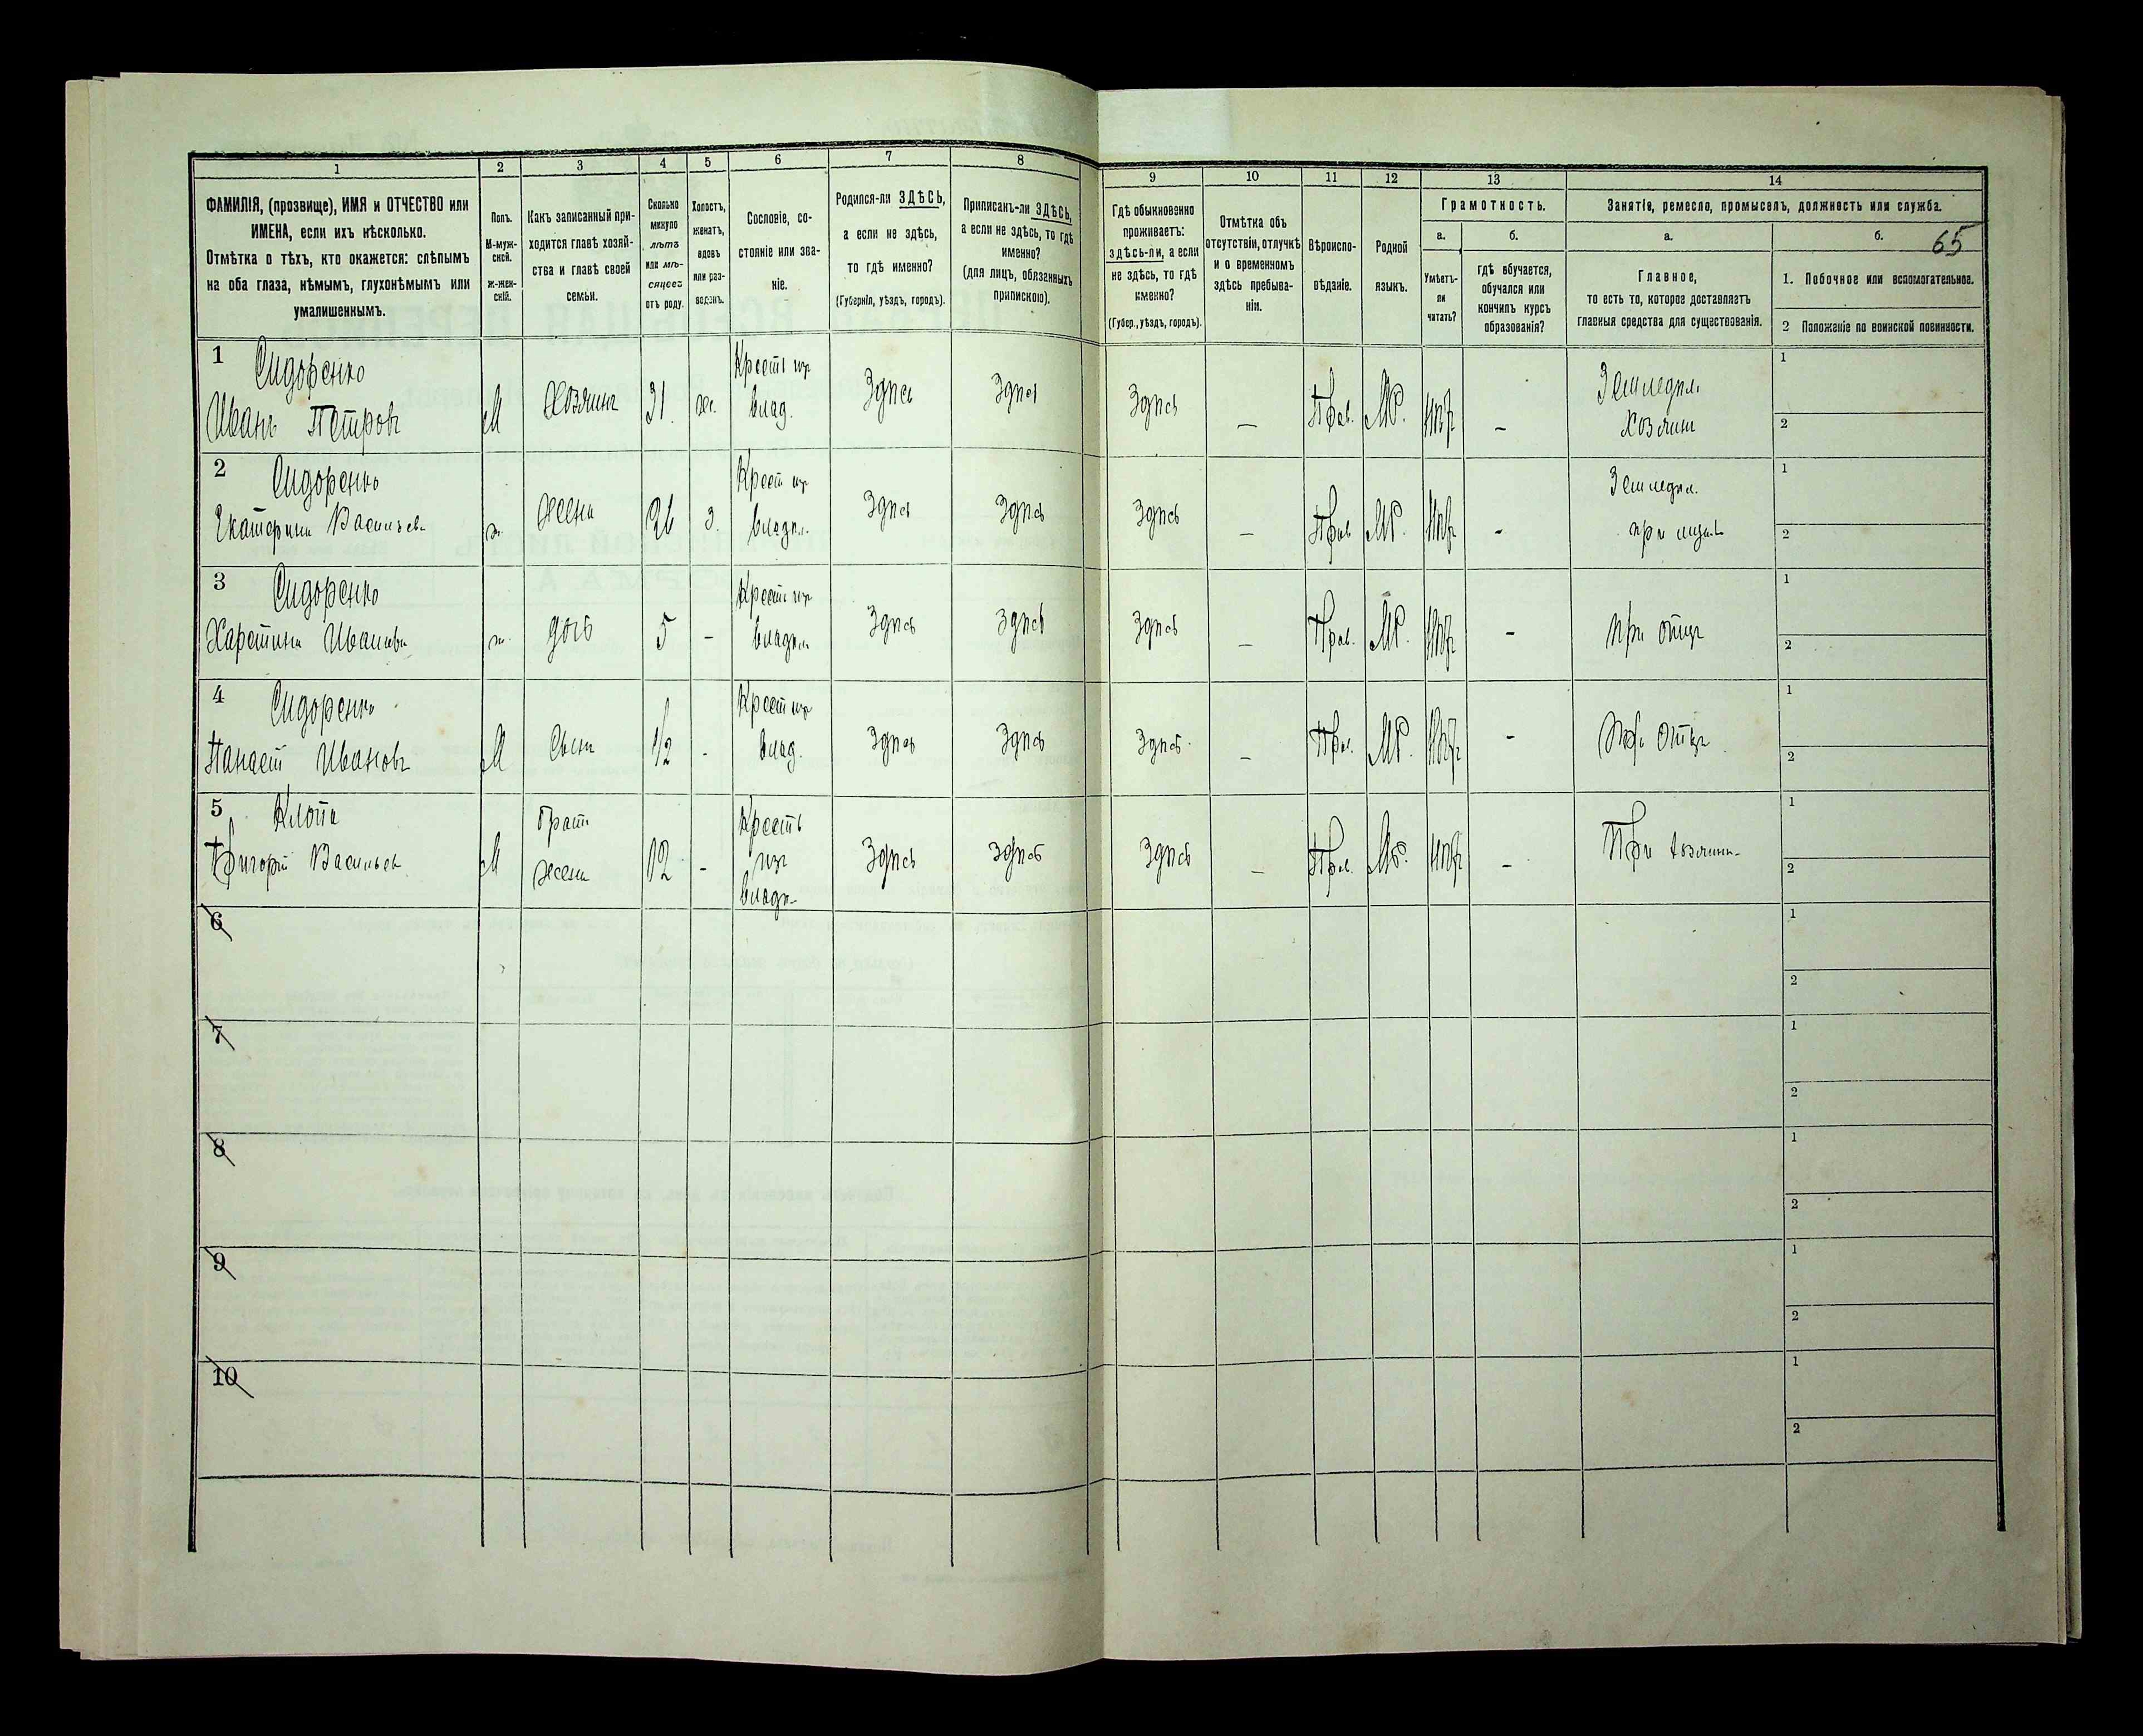 1
2
3
4
5
6
7
8
9
10
11
12
13
14
ФАМИЛІЯ, (прозвище), ИМЯ и ОТЧЕСТВО или
ИМЕНА, если ихъ нѣсколько.
Отмѣтка о тѣхъ, кто окажется: слѣпымъ
на оба глаза, нѣмымъ, глухонѣмымъ или
умалишеннымъ.
Полъ.
М-муж-
ской.
ж-жен-
скій.
Какъ записанный при-
ходится главѣ хозяй-
ства и главѣ своей
семьи.
Сколько
минуло
лѣтъ
или мѣ-
сяцевъ
отъ роду.
Холостъ,
женатъ,
вдовъ
или раз-
веденъ.
Сословіе, со-
стояніе или зва-
ніе.
Родился-ли ЗДѢСЬ,
а если не здѣсь,
то гдѣ именно?
(Губернія, уѣздъ, городъ).
Приписанъ-ли ЗДѢСЬ,
а если не здѣсь, то гдѣ
именно?
(для лицъ, обязанныхъ
припискою).
Гдѣ обыкновенно
проживаетъ:
здѣсь-ли, а если
не здѣсь, то гдѣ
именно?
(Губер., уѣздъ, городъ).
Отмѣтка объ
отсутствіи, отлучкѣ
и о временномъ
здѣсь пребыва-
ніи.
Вѣроиспо-
вѣданіе.
Родной
языкъ.
Грамотность.
а.
Умѣетъ-
ли
читать?
б.
гдѣ обучается,
обучался или
кончилъ курсъ
образованія?
Занятіе, ремесло, промыселъ, должность или служба.
а.
Главное,
то есть то, которое доставляетъ
главныя средства для существованія.
б.
65
1. Побочное или вспомогательное.
2 Положеніе по воинской повинности.
1 Сидоренко
Иванъ Петровъ
М
Хозяинъ
31
ж.
Крестъ изъ
влад.
Здѣсь
Здѣсь
Здѣсь
—
Прав.
Мр.
нѣт
–
Земледѣл.
Хозяинъ
1
2
2 Сидоренко
Екатерина Васильева
ж.
Жена
26
з.
Крест изъ
владѣл.
Здѣсь
Здѣсь
Здѣсь
—
Прав
Мр.
нѣт
-
Земледѣл.
при мужѣ
1
2
3 Сидоренко
Харетина Иванова
ж.
дочь
5
–
Крестъ изъ
владѣл
Здѣсь
Здѣсь
Здѣсь
—
Прав.
Мр.
нѣт
-
При отцѣ
1
2
4 Сидоренко
Панаст Ивановъ
М
Сынъ
1/2
-
Крест изъ
влад.
Здѣсь
Здѣсь
Здѣсь
—
Прав.
Мр.
нѣт
-
При отцѣ
1
2
5 Клопа
Григорій Васильев
М
Братъ
жены
12
-
Крестъ
изъ
владѣ-
Здѣсь
Здѣсь
Здѣсь
—
Прав.
Мр.
нѣт
–
При хозяинѣ
1
2
6
1
2
7
1
2
8
1
2
9
1
2
10
1
2